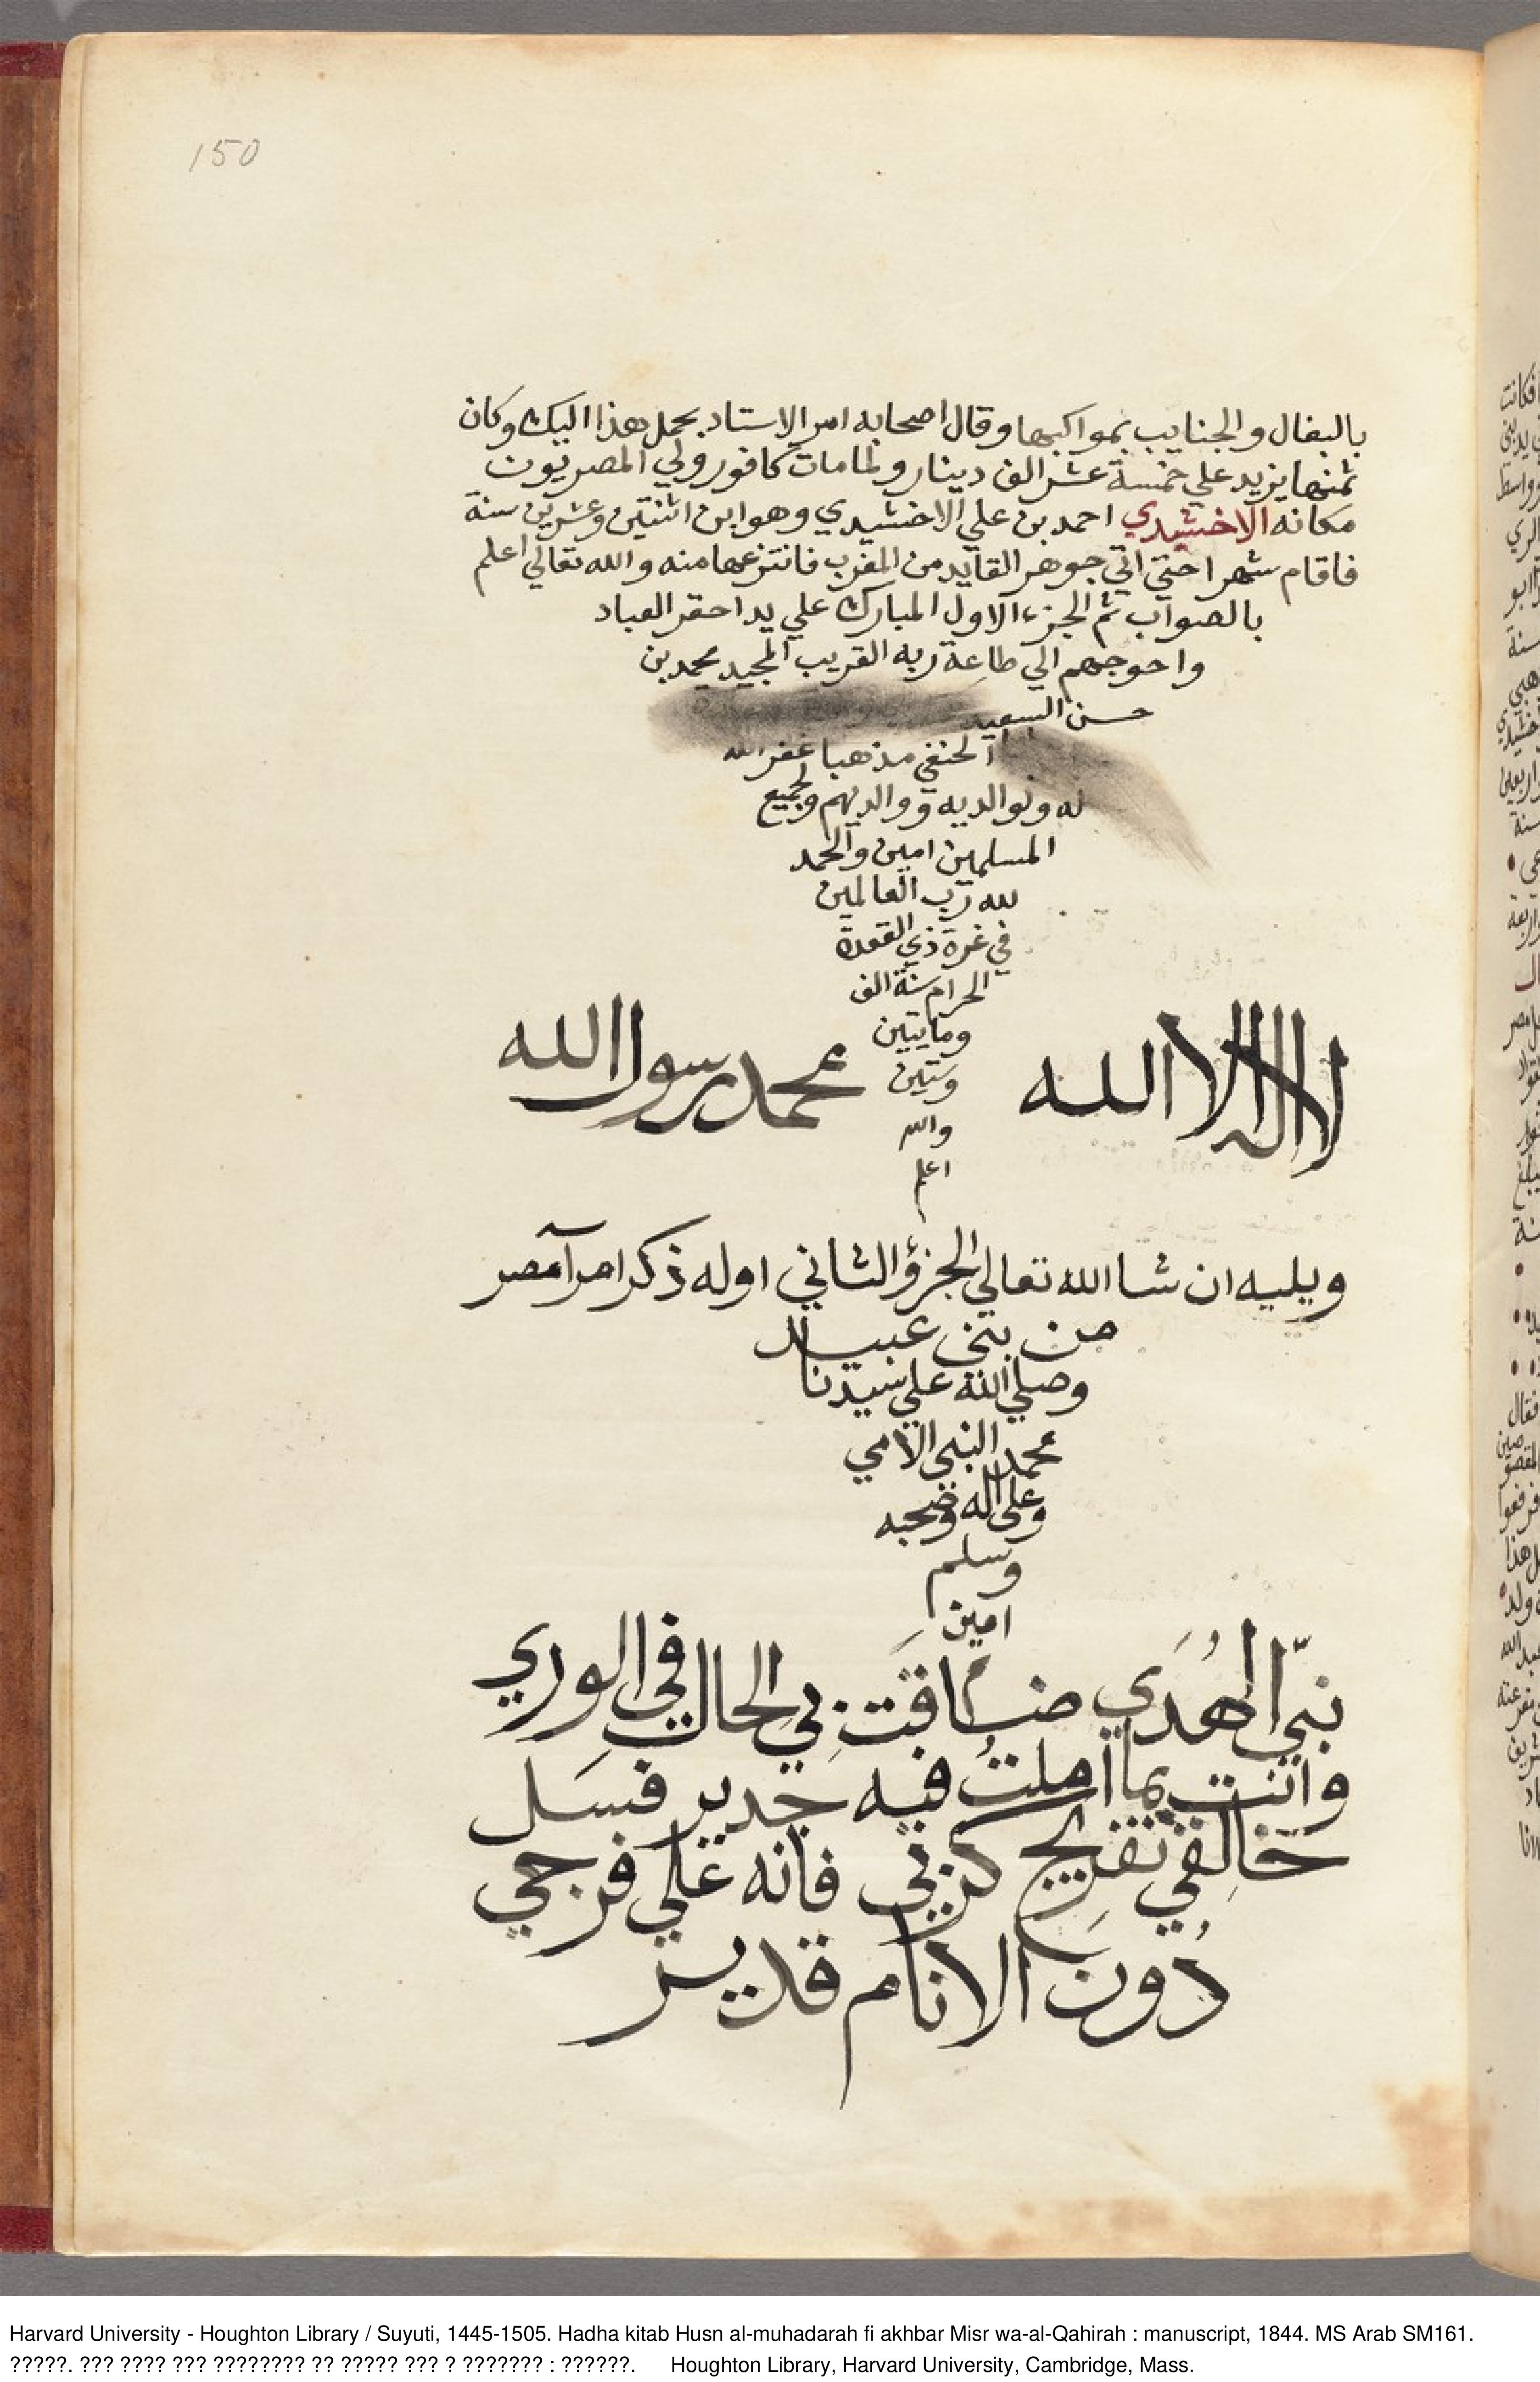 150
بالبغال والجنايب بمواكبها وقال اصحابه امر الاستاد بحمل هذا اليك وكان
ثمنها يزيد علي خمسة عشر الف دينار ولما مات كافور ولي المصريون
مكانه الاخشيدي احمد بن علي الاخشيدي وهو ابن اثنتين وعشرين سنة
فاقام شهرا حتي اتي جوهر القايد من المغرب فانتزعها منه والله تعالي اعلم
بالصواب تم الجزء الاول المبارك علي يد احقر العباد
واحوجهم الي طاعة ربه القريب المجيد محمد بن
حسن السعيد
الحنفي مذهبا غفر الله
له ولوالديه ووالديهم ولجميع
المسلمين امين والحمد
لله رب العالمين
في غرة ذي القعدة
الحرام سنة الف
ومايتين
وستين
والله
اعلم
لا اله الا الله
محمد رسول الله
ويليه ان شا الله تعالي الجزؤ الثاني اوله ذكر امرآ مصر
من بني عبيد
وصلي الله علي سيدنا
محمد النبي الامي
وعلي اله وصحبه
وسلم
امين
نبيّ الهُدَي ضاقَت بيِ الحال في الوري
وانت بما املتُ فيه جدير فسَل
خالِقي تفريج كربي فانه علي فرجي
دُونَ الانام قدير
Harvard University - Houghton Library / Suyuti, 1445-1505. Hadha kitab Husn al-muhadarah fi akhbar Misr wa-al-Qahirah : manuscript, 1844. MS Arab SM161.
?????. ??? ???? ??? ???????? ?? ????? ??? ? ??????? : ??????. Houghton Library, Harvard University, Cambridge, Mass.